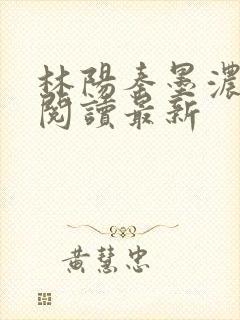 林陽秦墨濃
閱讀最新
黃慧忠